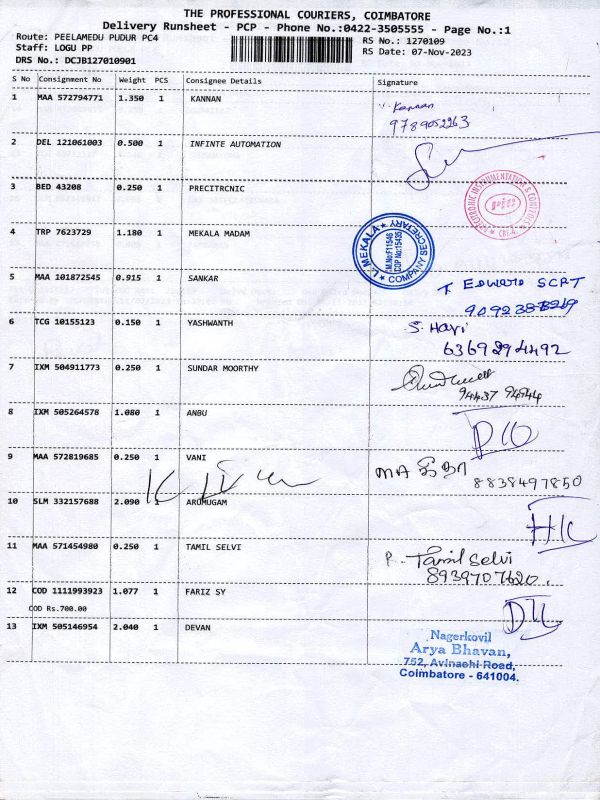 THE PROFESSIONAL COURIERS, COIMBATORE
Delivery Runsheet - PCP - Phone No.:0422-3505555 - Page No.:1
Route: PEELAMEDU PUDUR PC4
RS No.: 1270109
Staff: LOGU PP
RS Date: 07-Nov-2023
DRS No.: DCJB127010901
S No Consignment No Weight PCS Consignee Details Signature
1 MAA 572794771 1.350 1 KANNAN
Kannan
9789052263
2 DEL 121061003 0.500 1 INFINTE AUTOMATION
3 BED 43208 0.250 1 PRECITRCNIC
4 TRP 7623729 1.180 1 MEKALA MADAM
MEKALA
M.No:F11546
CDP No:15435
COMPANY SECRETARY
5 MAA 101872545 0.915 1 SANKAR
T EDWARD SCRT
6 TCG 10155123 0.150 1 YASHWANTH
S. Hari
6369294492
7 IXM 504911773 0.250 1 SUNDAR MOORTHY
94437 94944
8 IXM 505264578 1.080 1 ANBU
9 MAA 572819685 0.250 1 VANI
8838497850
10 SLM 332157688 2.090 1 ARUMUGAM
11 MAA 571454980 0.250 1 TAMIL SELVI
P. Tamil Selvi
8939707620.
12 COD 1111993923 1.077 1 FARIZ SY
COD Rs.700.00
13 IXM 505146954 2.040 1 DEVAN
Nagerkovil
Arya Bhavan,
752, Avinashi Road,
Coimbatore - 641004.